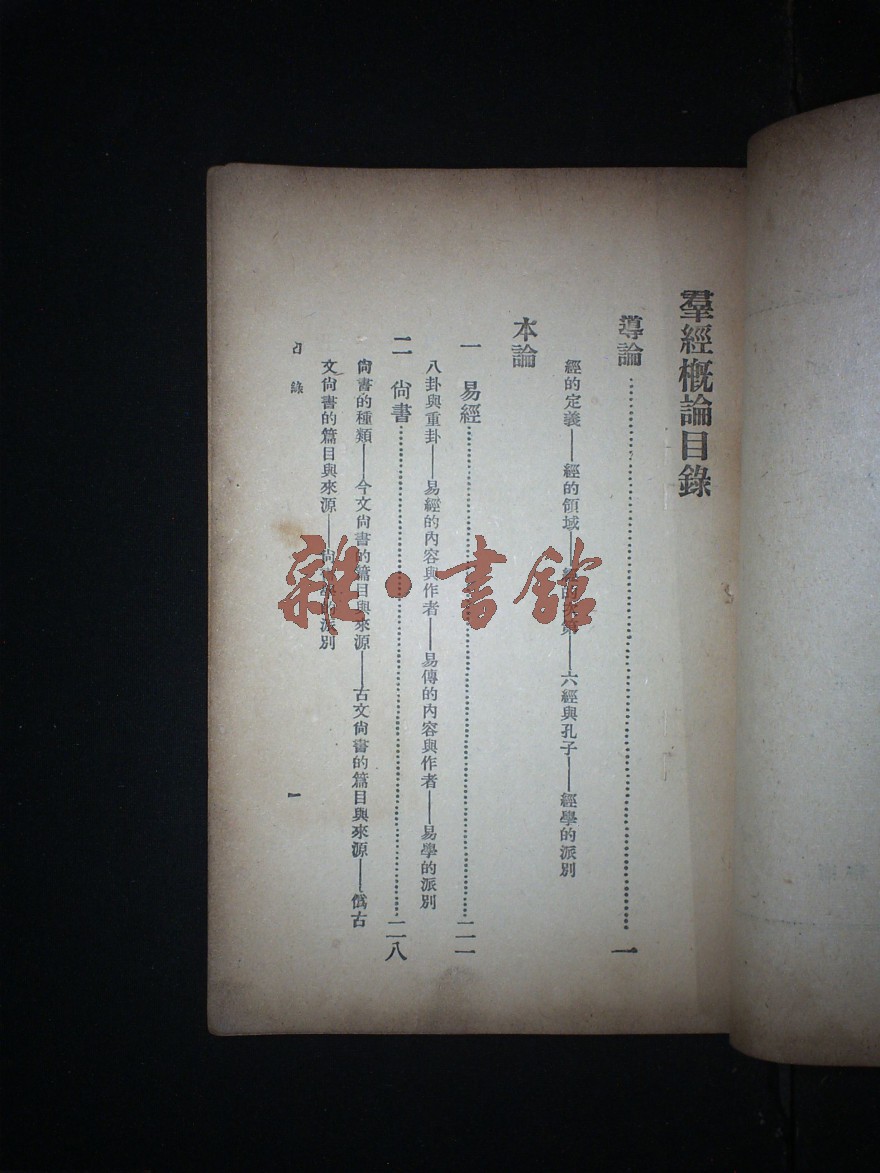 羣經概論目錄
導論……………………一
經的定義——經的領域——經的次第——六經與孔子——經學的派別
本論
一 易經……………………二一
八卦與重卦——易經的內容與作者——易傳的內容與作者——易學的派別
二 尙書……………………二八
尙書的種類——今文尙書的篇目與來源——古文尙書的篇目與來源——僞古
文尙書的篇目與來源——尙書學的派別
目錄
一
雜·書館